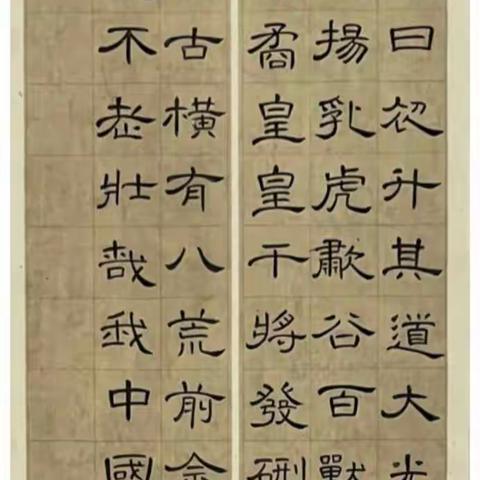 日初升其道大光
揚乳虎歗谷百獸
矞皇皇干將發硎
古橫有八荒前
不老壯哉我中國